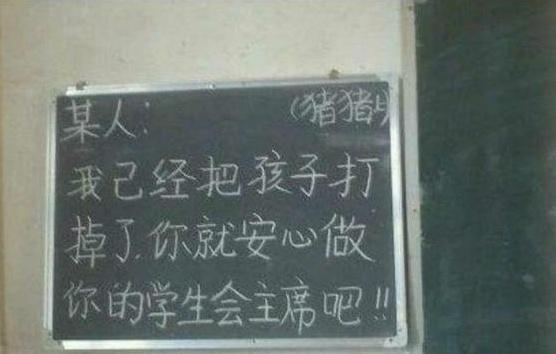 某人： （猪猪上）
我己经把孩子打
掉了.你就安心做
你的学生会主席吧!!